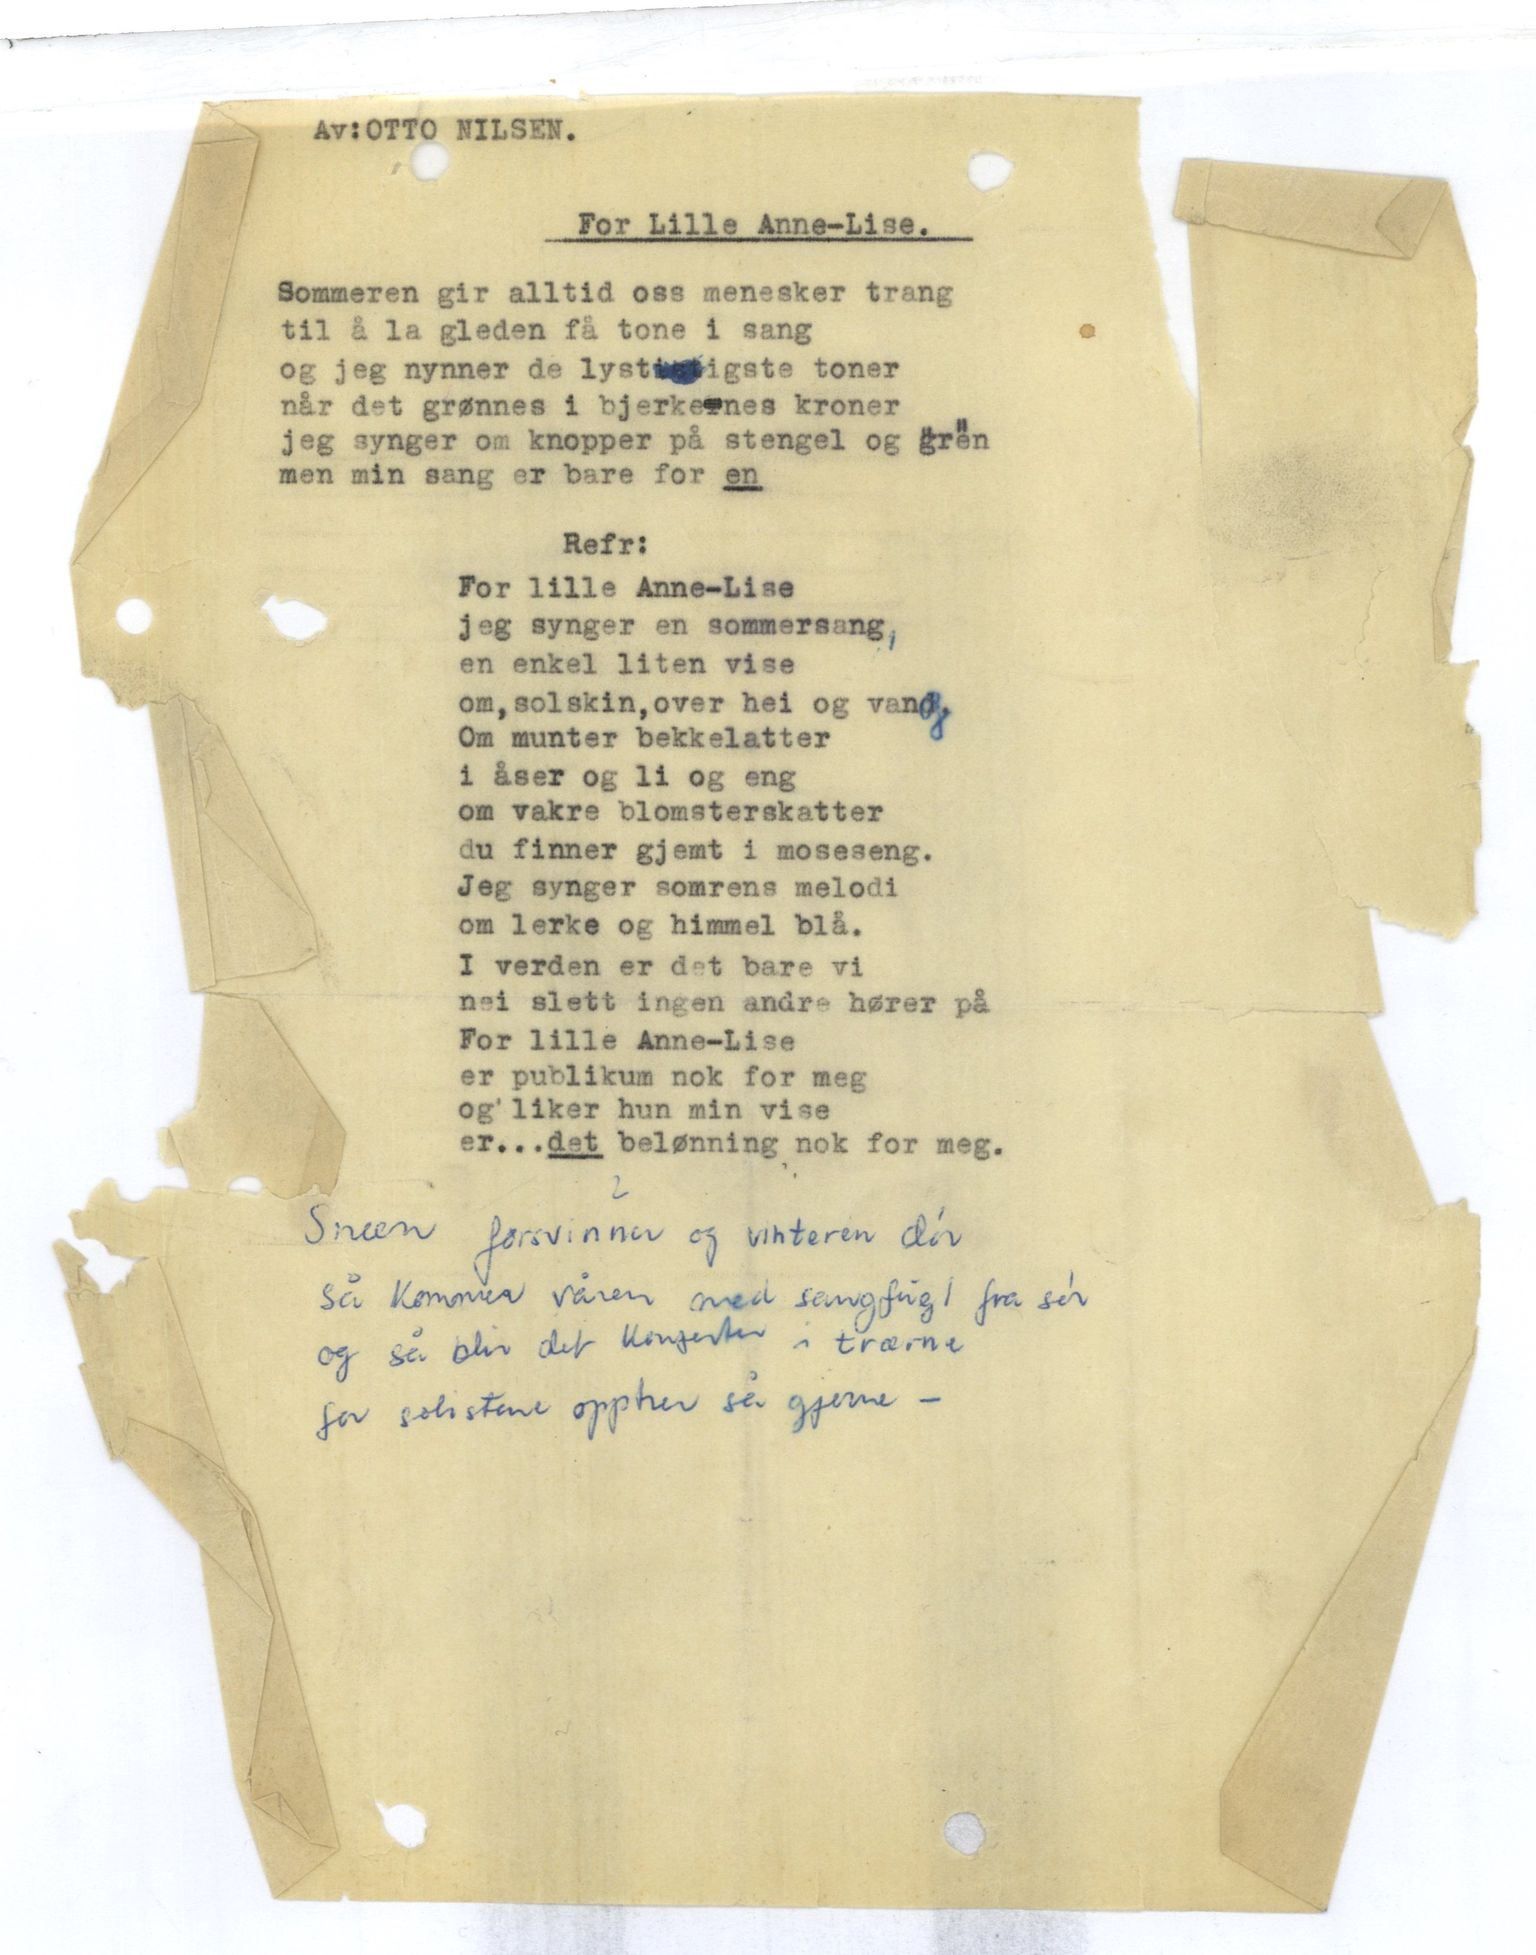 Av:OTTO NILSEN.
For Lille Anne-Lise.
Sommeren gir alltid oss menesker trang
til å la gleden få tone i sang
og jeg nynner de lystigste toner
når det grønnes i bjerkenes kroner
jeg synger om knopper på stengel og grën
men min sang er bare for en
Refr:
For lille Anne-Lise
jeg synger en sommersang,
en enkel liten vise
om,solskin,over hei og vang.
Om munter bekkelatter
i åser og li og eng
om vakre blomsterskatter
du finner gjemt i moseseng.
Jeg synger somrens melodi
om lerke og himmel blå.
I verden er det bare vi
nei slett ingen andre hører på
For lille Anne-Lise
er publikum nok for meg
og'liker hun min vise
er...det belønning nok for meg.
2
Sneen forsvinner og vinteren dør
så kommer våren med sangfugl fra sør
og så blir det konserter i trærne
for solistene opptrer så gjerne –